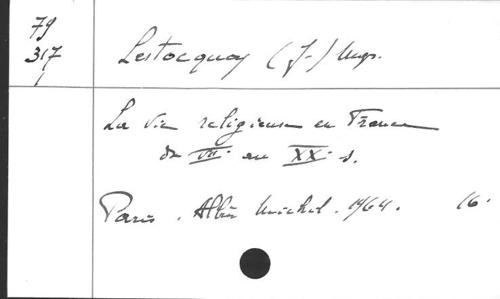 79
317
Lestocquoy (J.) Mgr.
La vie religieuse en France
du VII au XX s.
Paris. Albin Michel. 1964. 16°